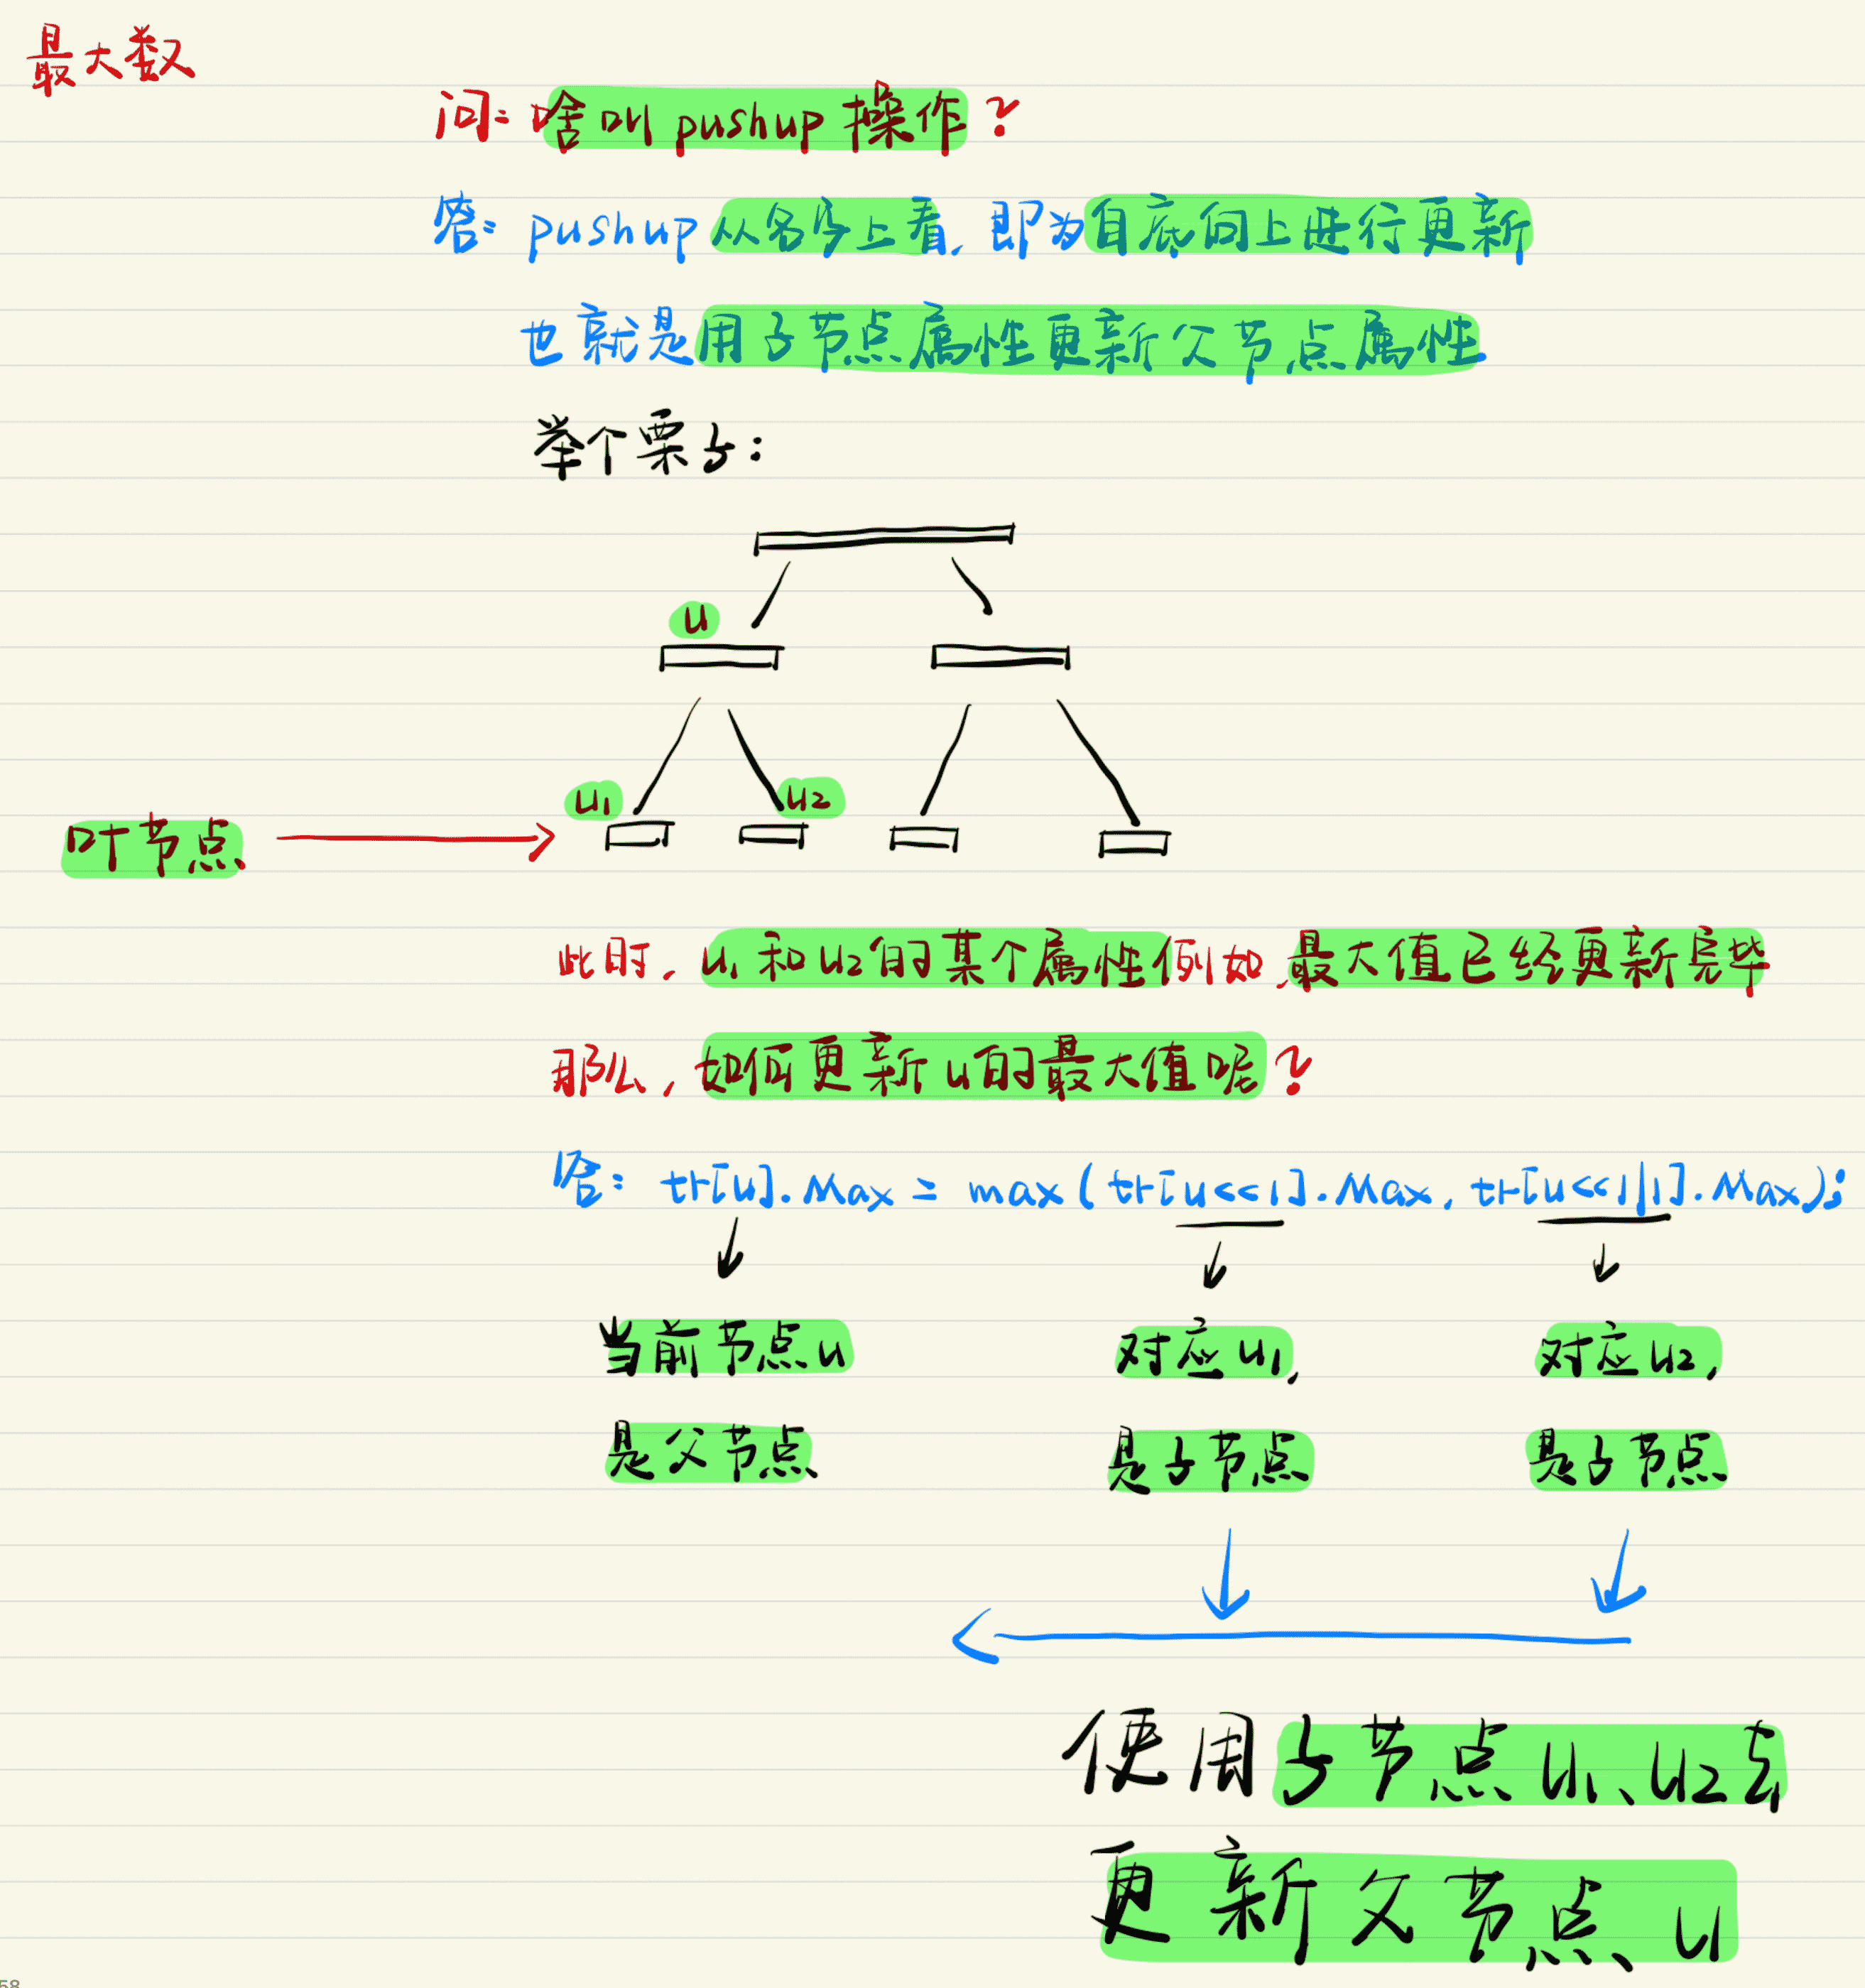 最大数
问: 啥叫 pushup 操作?
答: pushup 从名字上看, 即为自底向上进行更新
也就是用子节点属性更新父节点属性
举个栗子:
u
u1 u2
叶节点
此时, u1和u2的某个属性例如,最大值已经更新完毕
那么, 如何更新u的最大值呢?
答: tr[u].Max = max(tr[u<<1].Max, tr[u<<1|1].Max);
当前节点u 对应u1, 对应u2,
是父节点 是子节点 是子节点
使用子节点u1、u2去
更新父节点u
58